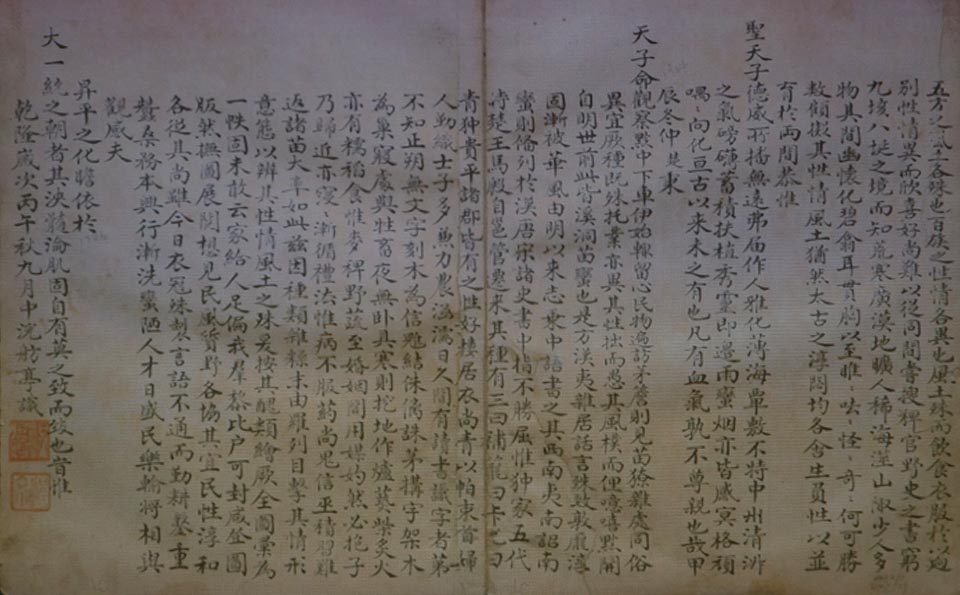 五方之氣土各殊也百族之性情各異也風土殊而飲食衣服於以迥
別性情異而欣喜好尚難以從同間嘗搜稗官野史之書窮
九垓八埏之境而知荒寒廣漠地曠人稀海澨山陬少人多
物其間幽懷化碧儋耳貫胸以至睢〻盱〻怪〻奇〻何可勝
數顧揆其性情風土猶然太古之淳悶均各含生負性以並
育於兩間恭惟
聖天子德威所播無遠弗届作人雅化薄海覃敷不特中州清淑
之氣磅礴蓄積扶植秀靈即邊雨蠻烟亦皆感冥格頑
喁〻向化亘古以來未之有也凡有血氣孰不尊親也哉甲
辰冬仲
天子命觀察黔中下車伊始輒留心民物過訪茅簷則見苗獠雜處同俗
異宜厥種既殊托業亦異其性拙而愚其風樸而俚噫嘻黔開
自明世前此皆溪洞苗蠻也是方漢夷雜居語言殊致敦龐淳
固漸被華風由明以來志乘中語書之其西南夷南詔南
蠻則條列於漢唐宋諸史書中指不勝屈惟狆家五代
時楚王馬殷自邕管遷來其種有三曰補籠曰卡尤曰
青狆貴平諸郡皆有之性好樓居衣尚青以帕束首婦
人勤織士子多力農涵濡日久間有讀書識字者第
不知正朔無文字刻木為信誅茅構宇架木
為巢寢處與牲畜夜無卧具寒則挖地作爐爇柴炙火
亦有稬稻食惟麥稗野蔬至婚姻間用媒妁然必抱子
乃歸近亦寖〻漸循禮法惟病不服葯尚鬼信巫積習難
返諸苗大率如此茲因種類雜糅未由羅列目擊其情形
意態以辨其性情風土之殊爰按其醜類繪厥全圖彙為
一帙固未敢云家給人足偏我羣黎比户可封咸登圖
版然撫圖展閱想見民風質野各協其宜民性淳和
各從其尚雖今日衣冠殊製言語不通而勤耕鑿重
蠶桑務本興行漸洗蠻陋人才日盛民樂輸將相與
觀感夫
昇平之化瞻依於
大一統之朝者其浹髓淪肌固自有莫之致而致也旹惟
乾隆歲次丙午秋九月中沈舫識